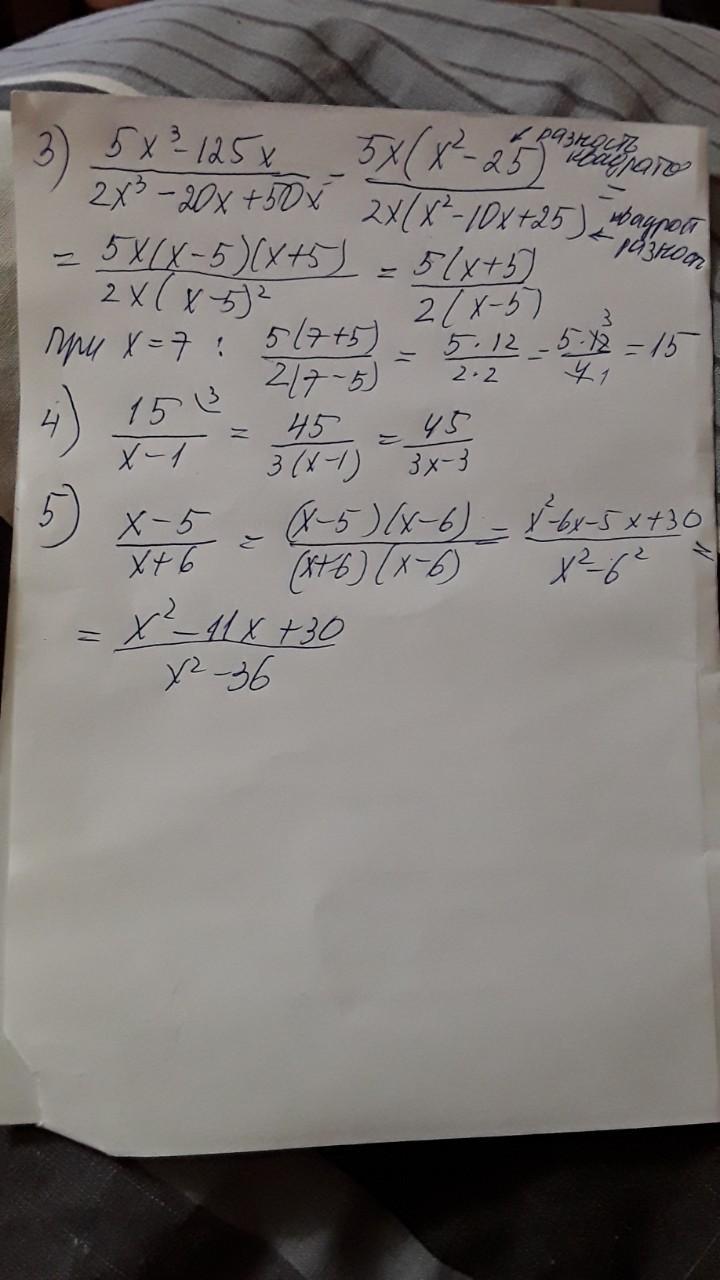 3) (5x³ - 125x)/(2x³ - 20x + 50x) = 5x(x² - 25)/2x(x² - 10x + 25) =
разность квадратов
квадрат разност
= 5x(x-5)(x+5)/2x(x-5)² = 5(x+5)/2(x-5)
при x = 7 : 5(7+5)/2(7-5) = 5·12/2·2 = 5·12 3/4 1 = 15
4) 15 \3/(x-1) = 45/3(x-1) = 45/(3x-3)
5) (x-5)/(x+6) = (x-5)(x-6)/(x+6)(x-6) = (x²-6x-5x+30)/(x²-6²) =
= (x² - 11x + 30)/(x² - 36)